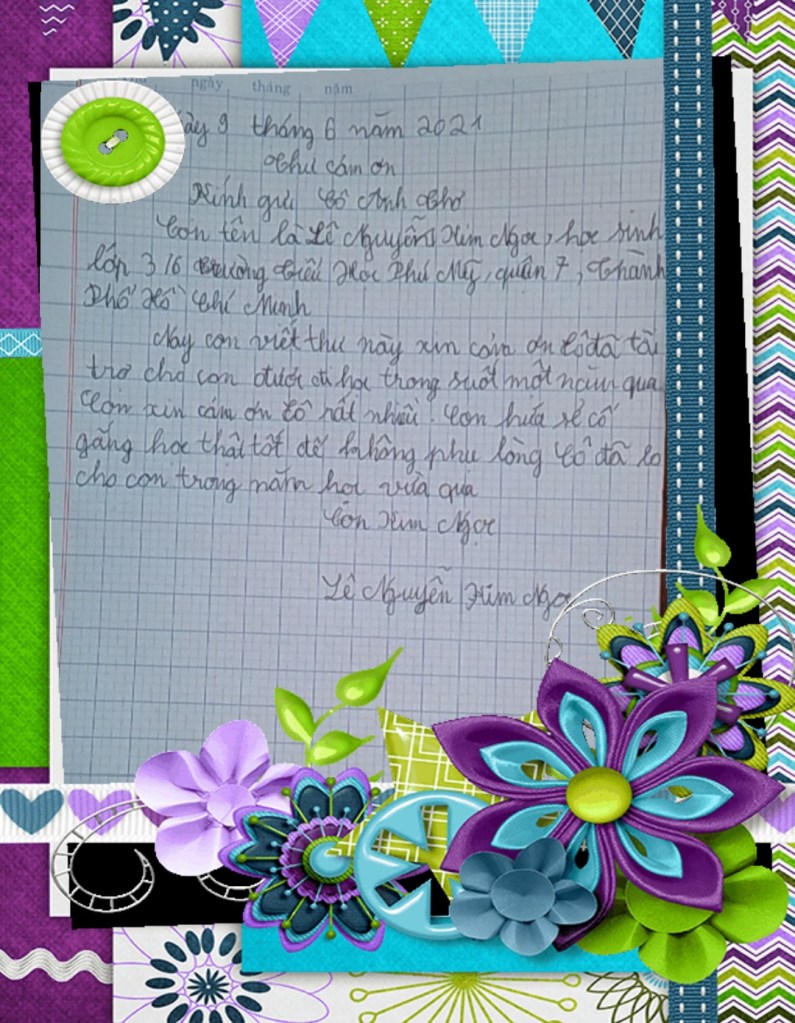 ngày tháng năm
ày 9 tháng 6 năm 2021
Thư cám ơn
Kính gửi Cô Anh Thơ
Con tên là Lê Nguyễn Kim Ngọc, học sinh
lớp 3/6 trường Tiểu Học Phú Mỹ, quận 7, Thành
Phố Hồ Chí Minh
Nay con viết thư này xin cảm ơn Cô đã tài
trợ cho con được đi học trong suốt một năm qua
Con xin cám ơn Cô rất nhiều. Con hứa sẽ cố
gắng học thật tốt để không phụ lòng Cô đã lo
cho con trong năm học vừa qua
Con Kim Ngọc
Lê Nguyễn Kim Ngọc